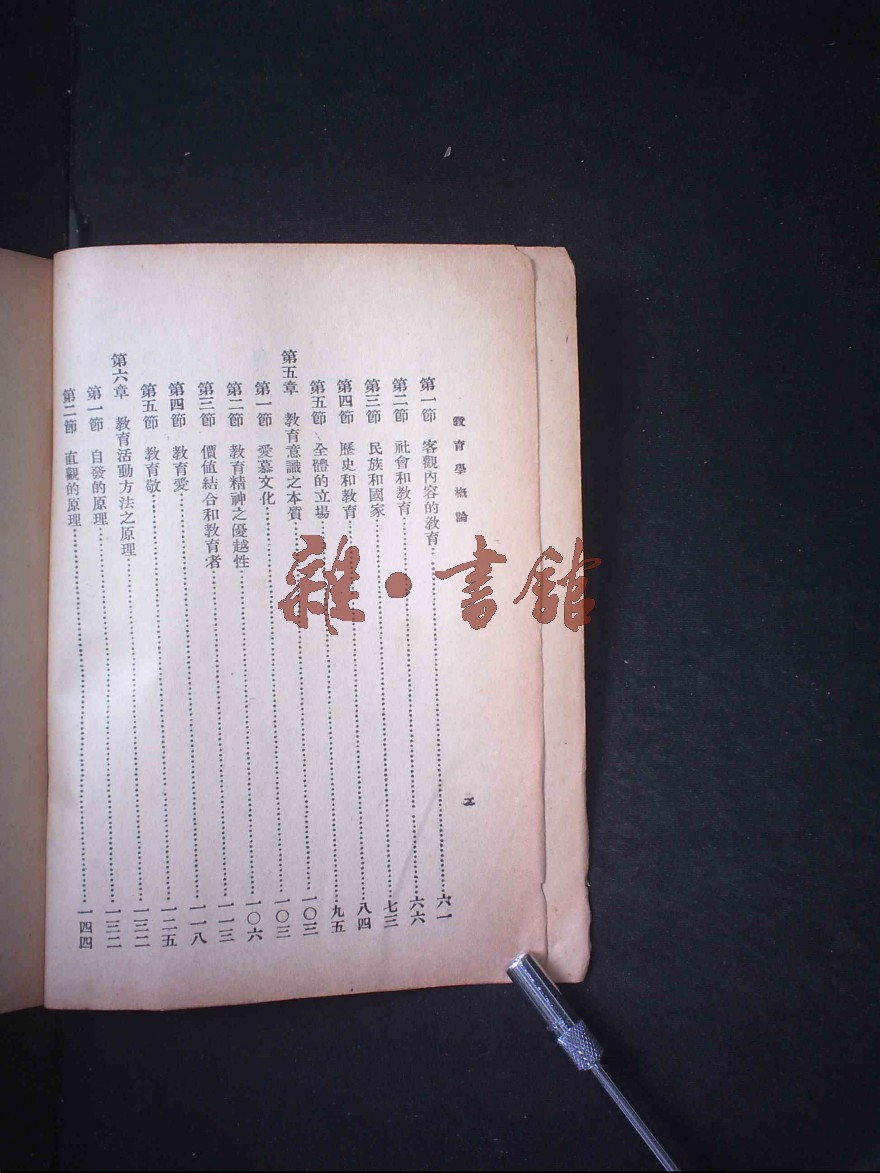 教育學概論
第一節　客觀內容的教育……六一
第二節　社會和教育……六六
第三節　民族和國家……七三
第四節　歷史和教育……八四
第五節　全體的立場……九五
第五章　教育意識之本質……一〇三
第一節　愛慕文化……一〇三
第二節　教育精神之優越性……一〇六
第三節　價値結合和教育者……一一三
第四節　教育愛……一一八
第五節　教育敬……一二五
第六章　教育活動方法之原理……一三二
第一節　自發的原理……一三二
第二節　直觀的原理……一四四
雜·書館